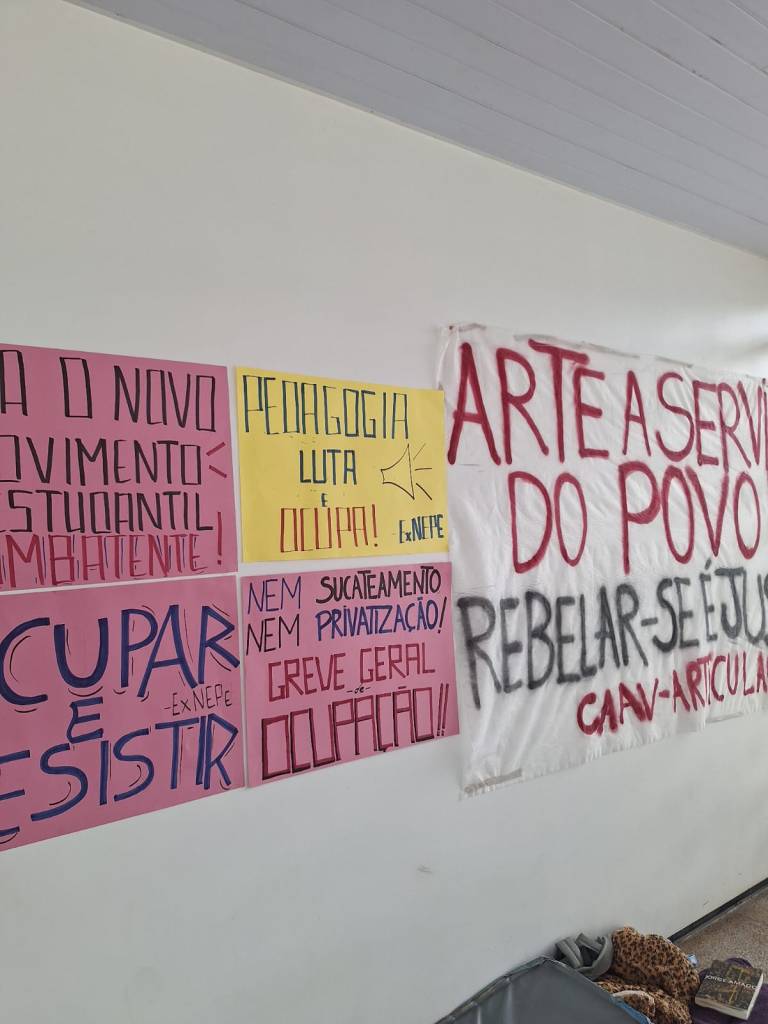 A O NOVO
OVIMENTO
ESTUDANTIL
MBATENTE!
PEDAGOGIA
LUTA
E
OCUPA!
-ExNEPE
CUPAR
E
-ExNEPe
ESISTIR
NEM SUCATEAMENTO
NEM PRIVATIZAÇÃO!
GREVE GERAL
-de-
OCUPAÇÃO!!
ARTE A SERVI
DO POVO
REBELAR-SE É JUS
CAAV-ARTICULA
JORGE AMADO